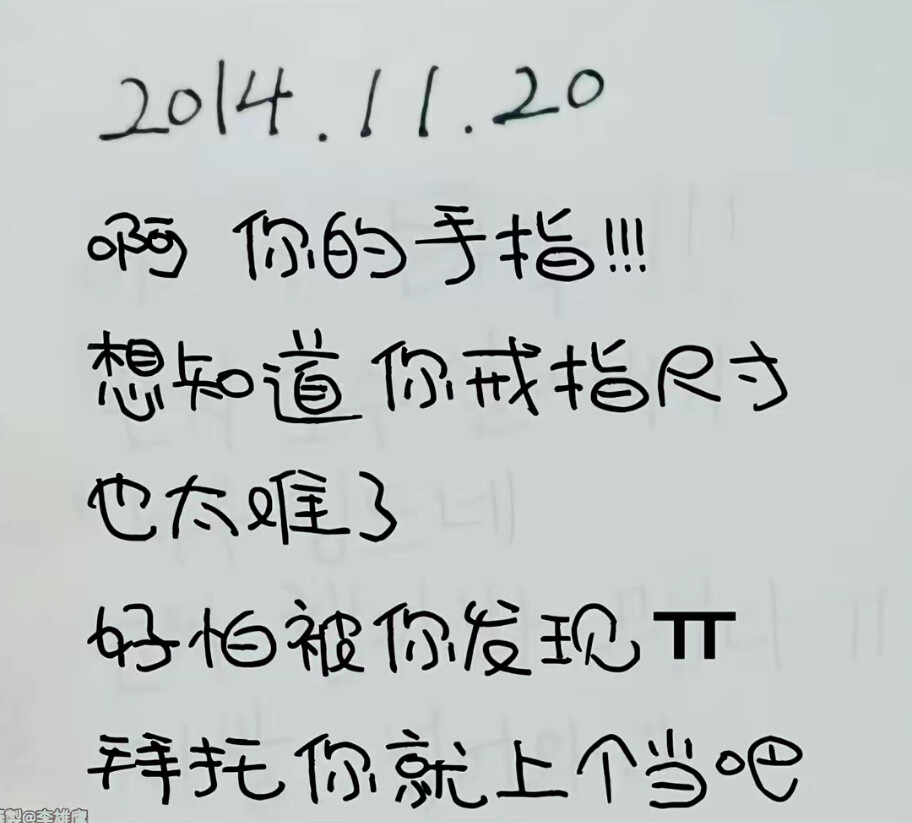 2014.11.20
啊 你的手指!!!
想知道你戒指尺寸
也太难了
好怕被你发现ㅠ
拜托你就上个当吧